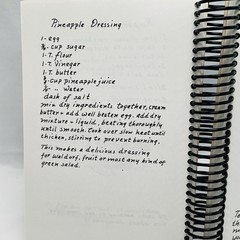 Pineapple Dressing
1- egg
½-cup sugar
1-T. flour
1-T. vinegar
1-T. butter
¾-cup pineapple juice
¼- " water
dash of salt
mix dry ingredients together, cream
butter & add well broten egg. add dry
mixture & liquid, beating thoroughly
until smooth. Cook over slow heat until
thicken, stirring to prevent burning.
This makes a delicious dressing
for waldorf, fruit or most any kind of
green salad.